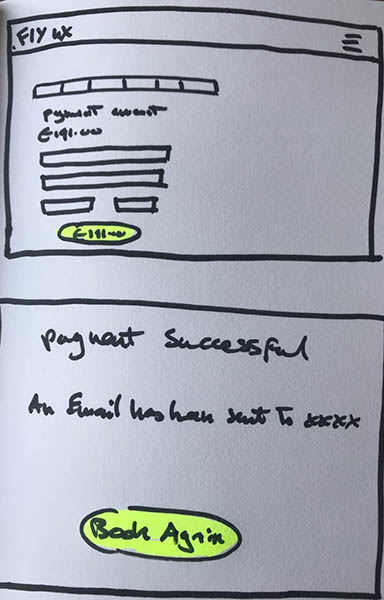 FLY UX
Payment amount
£191.00
£191.00
Payment Successful
An Email has been sent to xxxx
Book Again